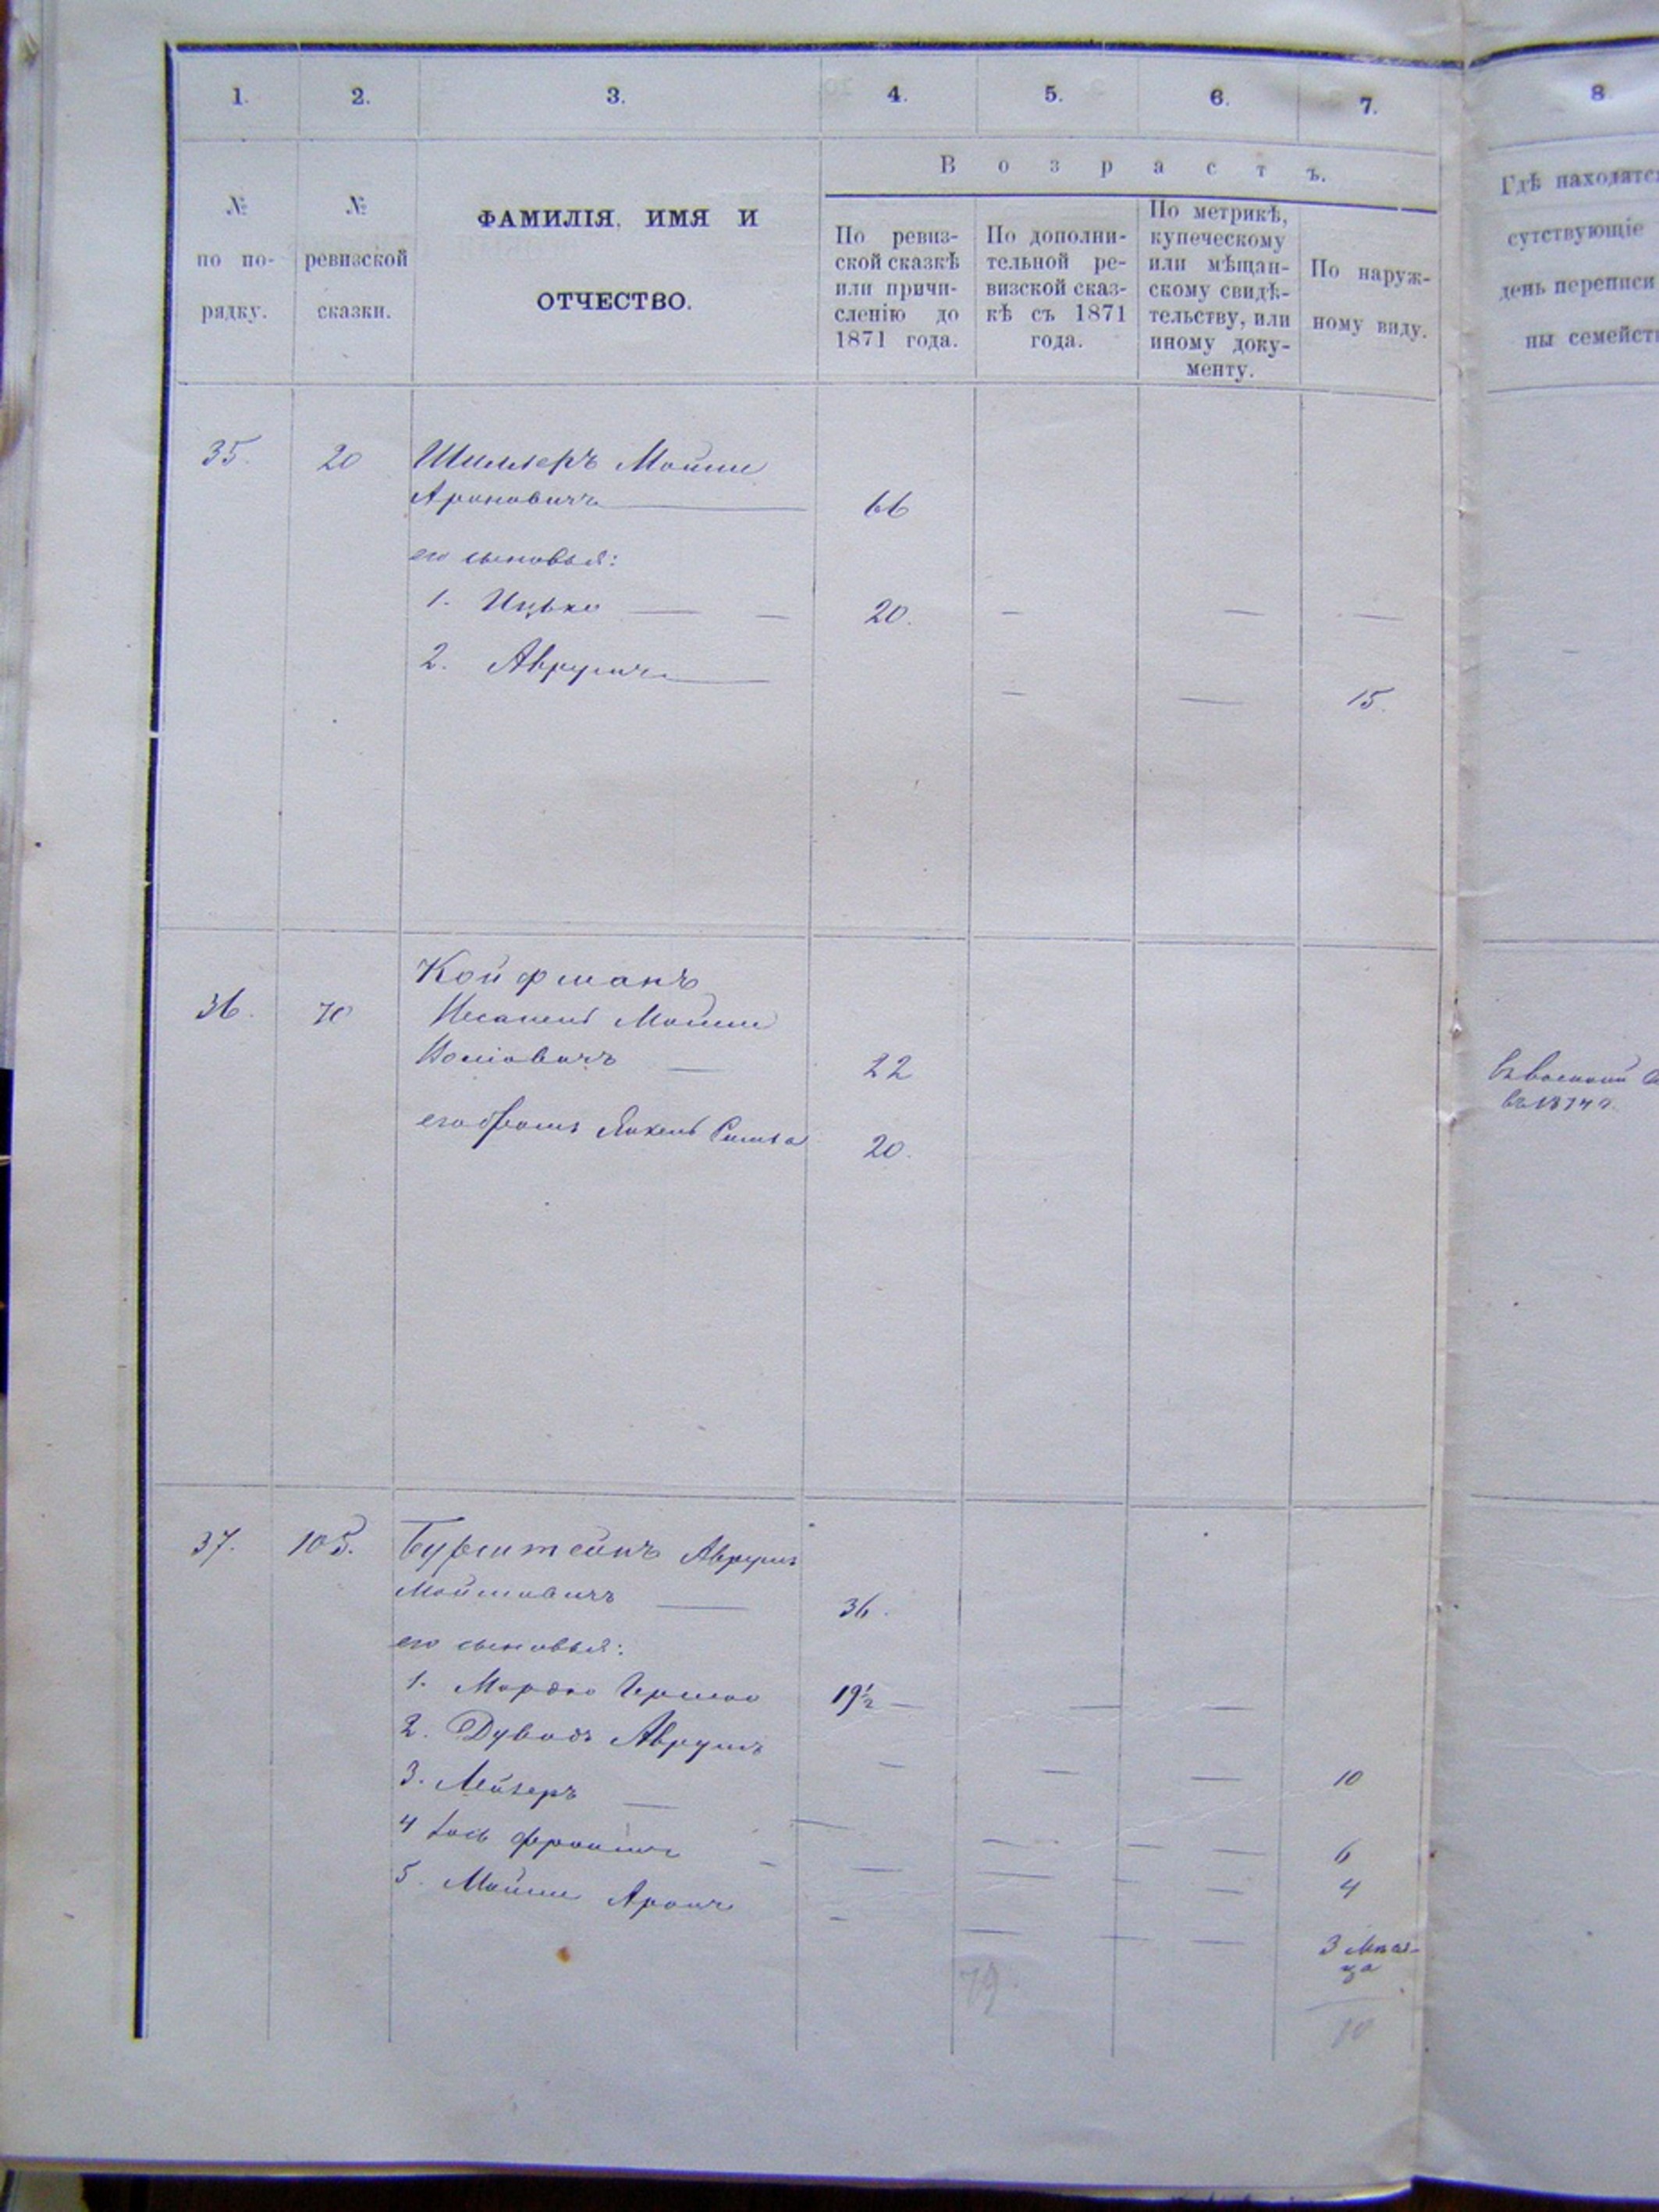 1. 2. 3. 4. 5. 6. 7. 8
В о з р а с т ъ.
№
по по-
рядку.
№
ревизской
сказки.
ФАМИЛІЯ, ИМЯ И
ОТЧЕСТВО.
По ревиз-
ской сказкѣ
или причи-
сленію до
1871 года.
По дополни-
тельной ре-
визской сказ-
кѣ съ 1871
года.
По метрикѣ,
купеческому
или мѣщан-
скому свидѣ-
тельству, или
иному доку-
менту.
По наруж-
ному виду.
Гдѣ находятся
сутствующіе
день переписи
ны семейств
35. 20 Шиллеръ Мойше
Ароновичъ 66
его сыновья:
1. Ицько — — 20. — — —
2. Аврумъ — — — 15.
36. 70 Койфманъ
Мойше
Іосіовичъ — 22
его братъ 20.
въ 1874 г.
37. 105. Бурштейнъ Аврумъ
Мойшовичъ — 36.
его сыновья:
1. Мордко Гершко 19½ — — —
2. Дувидъ Аврумъ — — — 10
3. Лейзеръ — — — — 6
4 Іось Фроимъ — — — — 4
5. Мойше Аронъ — — — 3 мѣся-
ца
79.
10